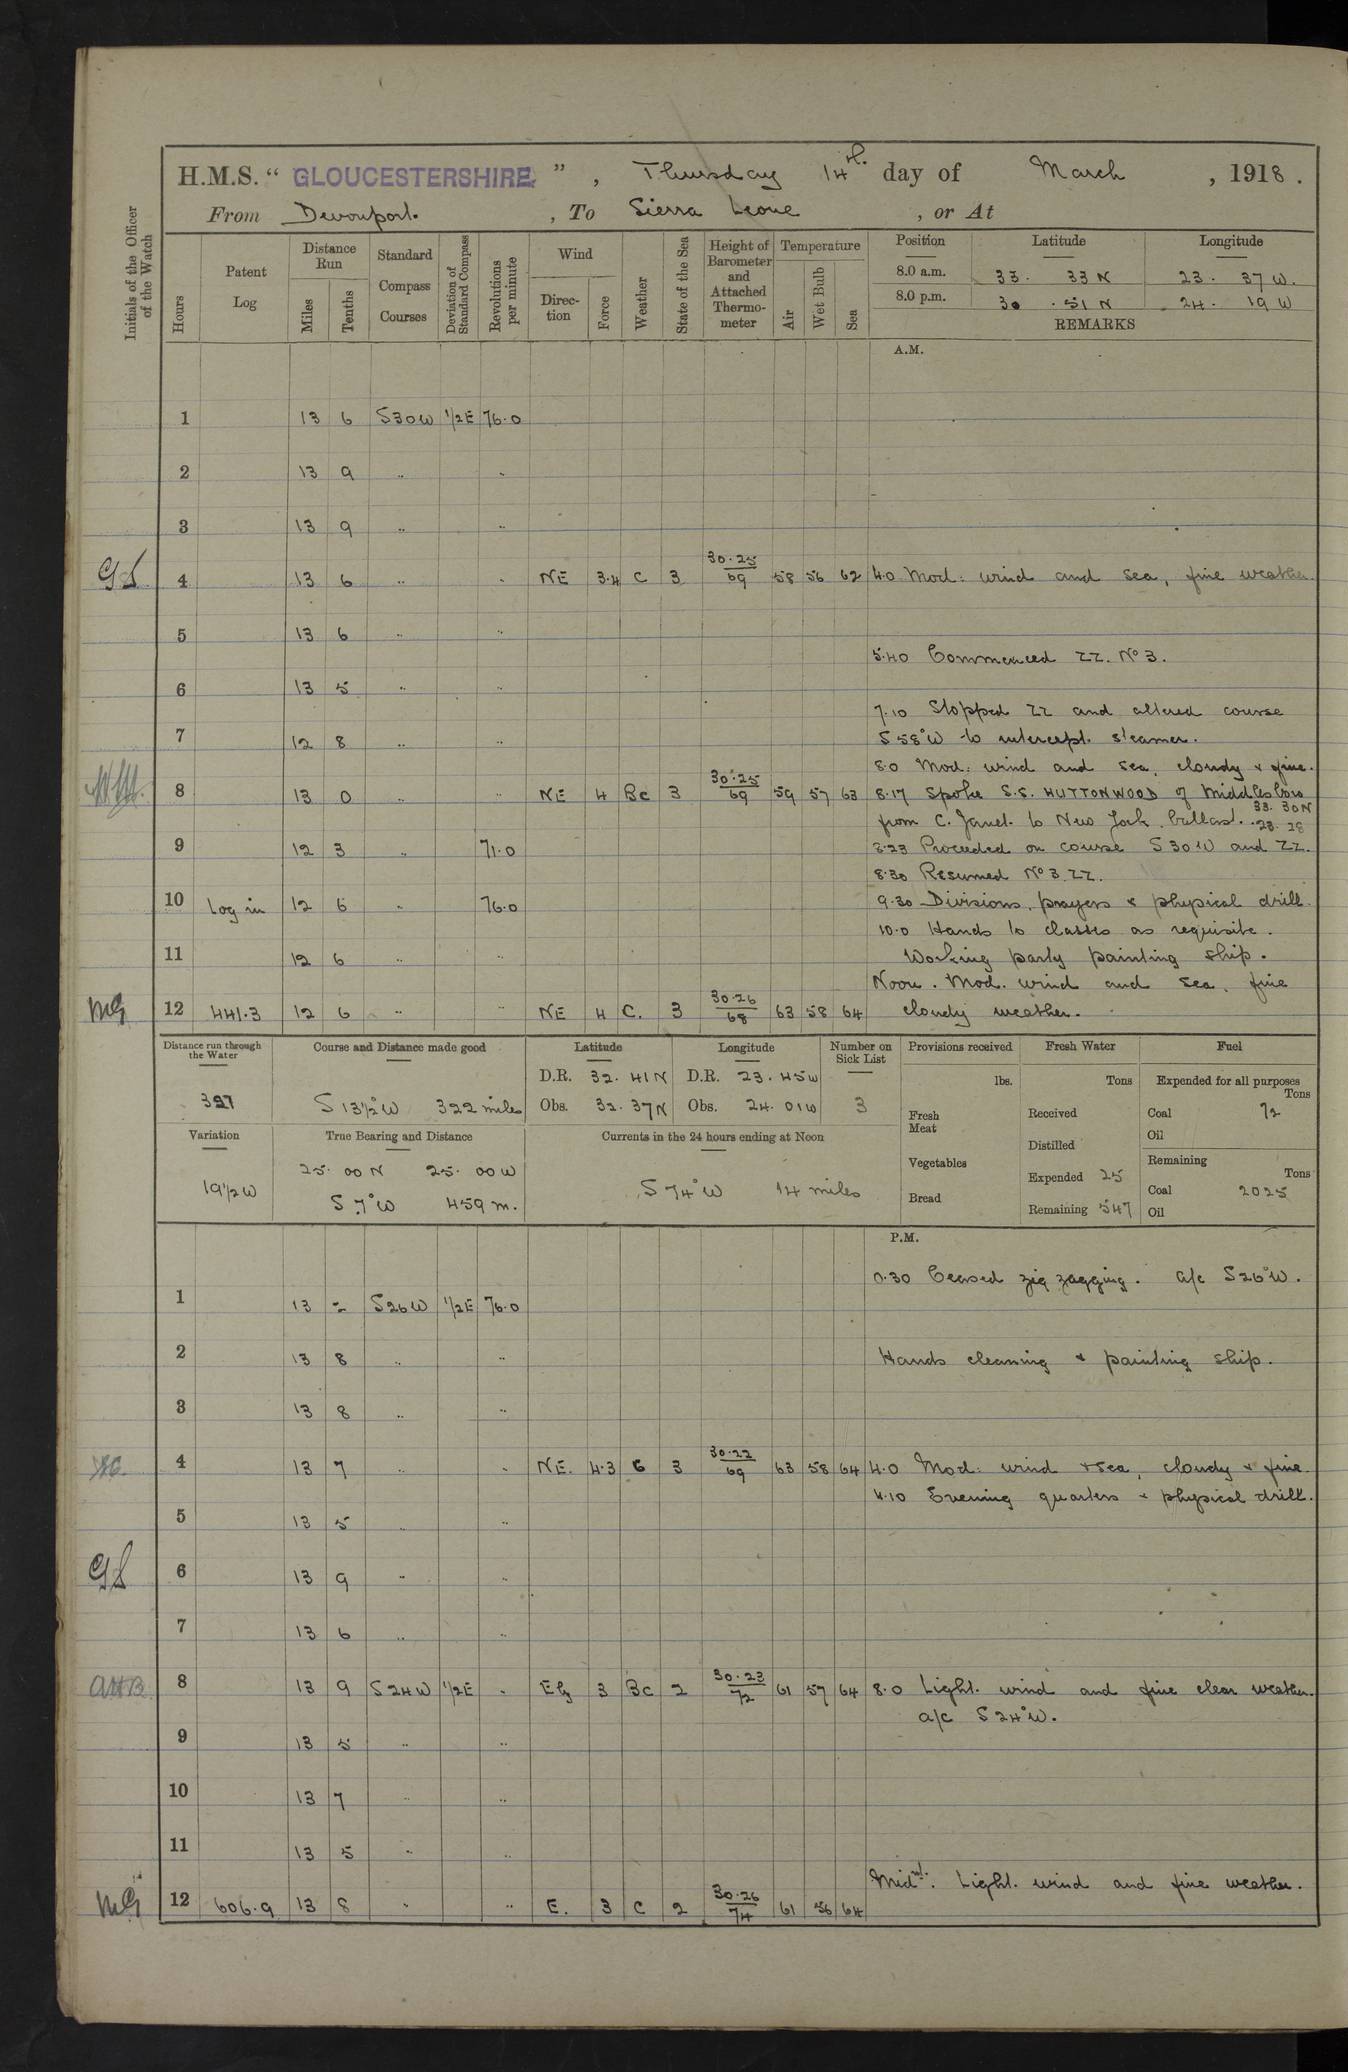 H.M.S. “ GLOUCESTERSHIRE ” , Thursday 14th. day of March , 1918 .
From Devonport. , To Sierra Leone , or At
Initials of the Officer of the Watch
Hours
Patent Log
Distance Run
Miles
Tenths
Standard Compass Courses
Deviation of Standard Compass
Revolutions per minute
Wind
Direc-tion
Force
Weather
State of the Sea
Height of Barometer and Attached Thermo-meter
Temperature
Air
Wet Bulb
Sea
Position Latitude Longitude
8.0 a.m. 33. 33 N 23. 37 W.
8.0 p.m. 30 . 51 N 24. 19 W
REMARKS
A.M.
1 13 6 S30W 1/2E 76.0
2 13 9 .. ..
3 13 9 .. ..
GS 4 13 6 .. .. NE 3.4 C 3 30.25/69 58 56 62 4.0 Mod: wind and sea, fine weather.
5 13 6 .. ..
5.40 Commenced ZZ. No 3.
6 13 5 .. ..
7.10 Stopped ZZ and altered course
7 12 8 .. .. S 58°W to intercept steamer.
8.0 Mod: wind and sea, cloudy & fine.
8 13 0 .. .. NE 4 Bc 3 30.25/69 59 57 63 8.17 Spoke S.S. HUTTONWOOD of Middlesbro
from C. Janet. to New York ballast. 33. 30N
.23. 28
9 12 3 .. 71.0 8.23 Proceeded on course S 30 W and ZZ.
8.30 Resumed No 3 ZZ.
10 Log in 12 6 .. 76.0 9.30 Divisions, prayers & physical drill.
10.0 Hands to classes as requisite.
11 12 6 .. .. Working party painting ship.
Noon. Mod. wind and sea, fine
MG 12 441.3 12 6 .. .. NE 4 C. 3 30.26/68 63 58 64 cloudy weather.
Distance run through the Water
327
Course and Distance made good
S 13½°W 322 miles
Latitude
D.R. 32. 41 N
Obs. 32. 37 N
Longitude
D.R. 23. 45 W
Obs. 24. 01 W
Number on Sick List
3
Variation
19½ W
True Bearing and Distance
25. 00 N 25. 00 W
S 7°W 459 m.
Currents in the 24 hours ending at Noon
S 74°W 14 miles
Provisions received
lbs.
Fresh Meat
Vegetables
Bread
Fresh Water
Tons
Received
Distilled
Expended 25
Remaining 547
Fuel
Expended for all purposes
Tons
Coal 72
Oil
Remaining
Tons
Coal 2025
Oil
P.M.
0.30 Ceased zig zagging. a/c S26°W.
1 13 = S26W 1/2E 76.0
2 13 8 .. .. Hands cleaning & painting ship.
3 13 8 .. ..
4 13 7 .. .. NE. 4.3 C 3 30.22/69 63 58 64 4.0 Mod: wind & sea, cloudy & fine.
4.10 Evening quarters & physical drill.
5 13 5 .. ..
GS 6 13 9 .. ..
7 13 6 .. ..
AHB 8 13 9 S24W 1/2E .. Ely 3 Bc 2 30.23/72 61 57 64 8.0 Light. wind and fine clear weather.
a/c S 24°W.
9 13 5 .. ..
10 13 7 .. ..
11 13 5 .. ..
Midnt. Light. wind and fine weather.
MG 12 606.9 13 8 .. .. E. 3 C 2 30.26/74 61 56 64